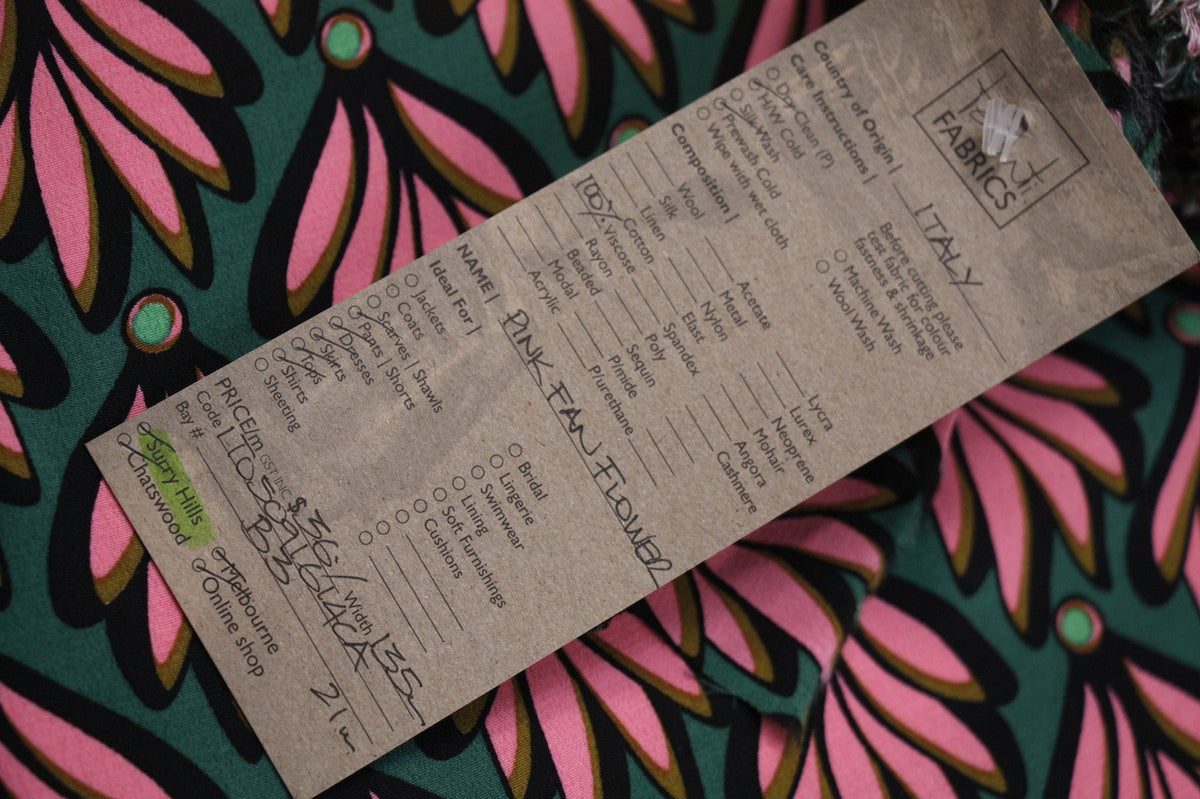 FABRICS
Country of Origin | ITALY
Care Instructions |
Dry Clean (P)
H/W Cold
Silk Wash
Prewash Cold
Wipe with wet cloth
Before cutting please
test fabric for colour
fastness & shrinkage
Machine Wash
Wool Wash
Composition |
Wool
Silk
Linen
Cotton
100% Viscose
Rayon
Beaded
Modal
Acrylic
Acetate
Metal
Nylon
Elast
Spandex
Poly
Sequin
P/mide
P/urethane
Lycra
Lurex
Neoprene
Mohair
Angora
Cashmere
NAME | PINK FAN FLOWER
Ideal For |
Jackets
Coats
Scarves | Shawls
Pants | Shorts
Dresses
Skirts
Tops
Shirts
Sheeting
Bridal
Lingerie
Swimwear
Lining
Soft Furnishings
Cushions
PRICE/m GST INC $36/ Width 135
Code
Bay # B3 21m
Surry Hills
Chatswood
Melbourne
Online shop